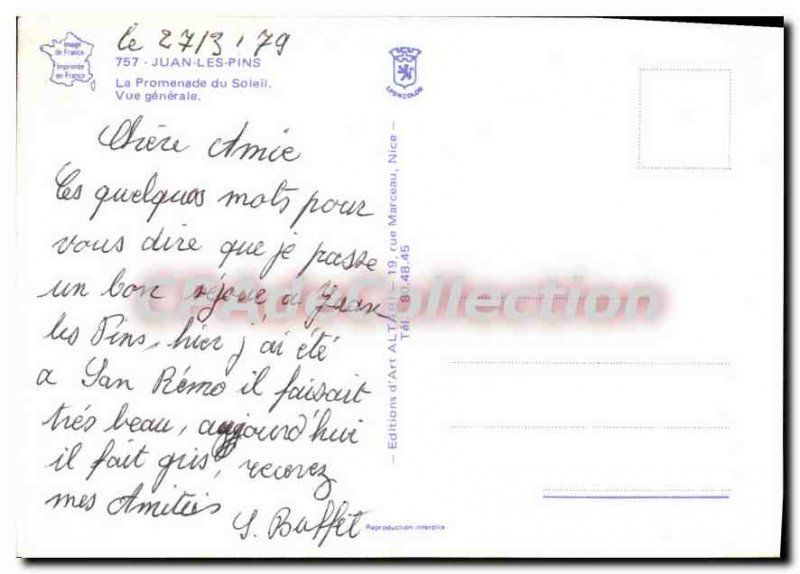 le 27/3/79
Image
de France
Imprimée
en France
757 - JUAN-LES-PINS
La Promenade du Soleil.
Vue générale.
LYONCOLOR
Chère Amie
Ces quelques mots pour
vous dire que je passe
un bon séjour à Juan
les Pins, hier j'ai été
a San Rémo il faisait
très beau, aujourd'hui
il fait gris, recevez
mes Amitiés
S. Buffet
— Editions d'Art ALTARI - 19, rue Marceau, Nice —
Tél. : 80.48.45
Reproduction interdite
CPAdeCollection